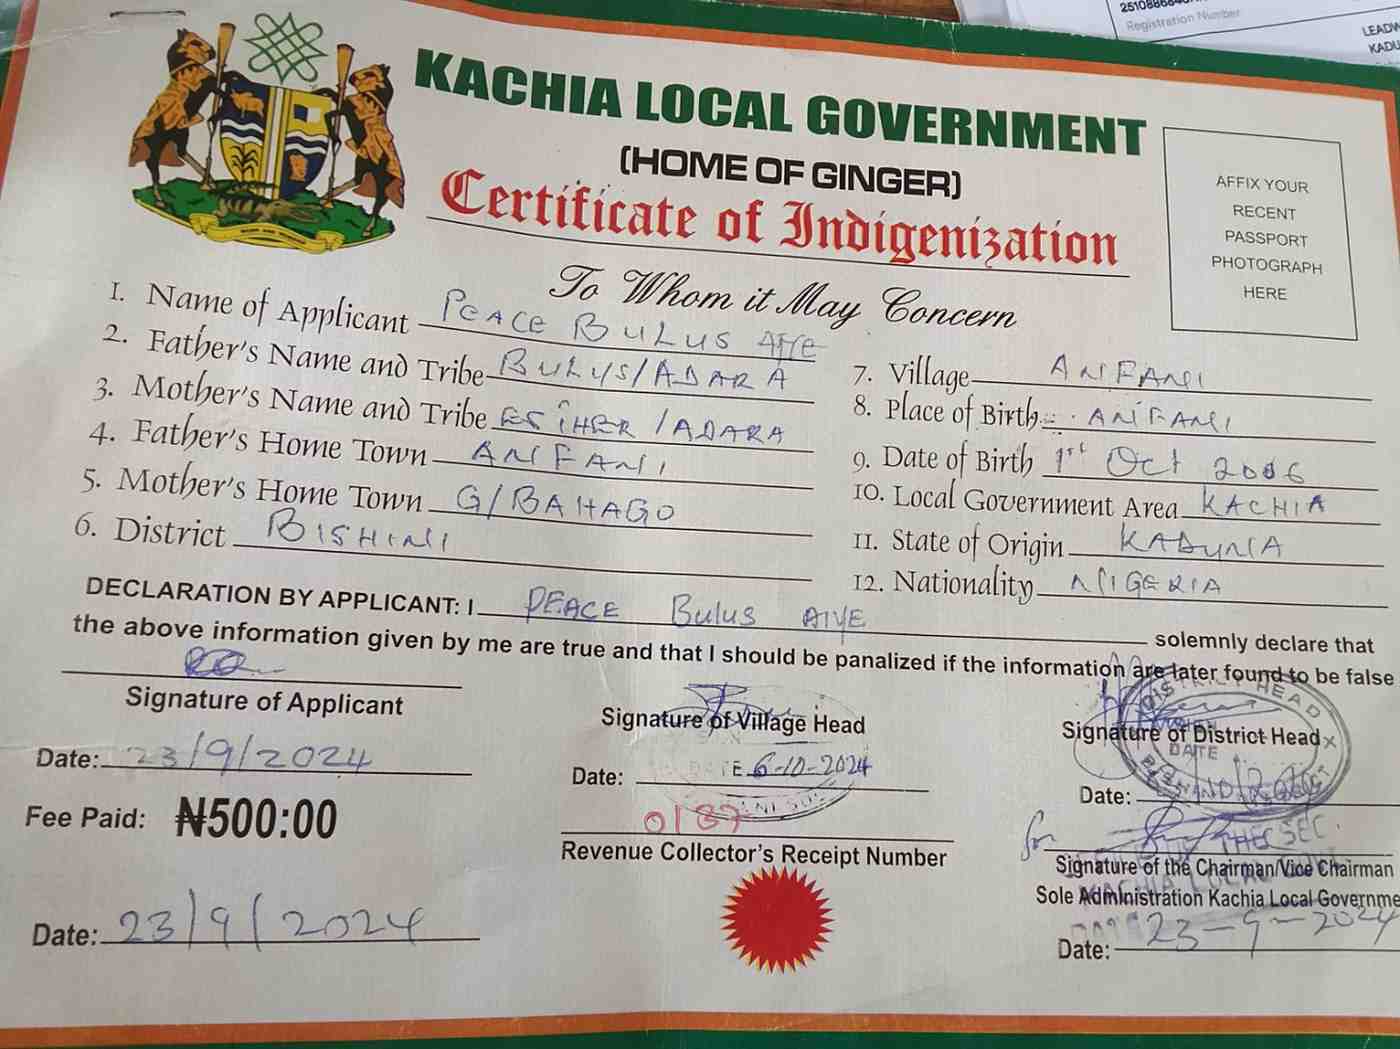 25108868
Registration Number
LEADW
KADU
KACHIA LOCAL GOVERNMENT
(HOME OF GINGER)
Certificate of Indigenization
To Whom it May Concern
AFFIX YOUR
RECENT
PASSPORT
PHOTOGRAPH
HERE
1. Name of Applicant PEACE BULUS
2. Father's Name and Tribe BULUS/ADARA
3. Mother's Name and Tribe ESTHER/ADARA
4. Father's Home Town ANFANI
5. Mother's Home Town G/BAHAGO
6. District BISHINI
7. Village ANFANI
8. Place of Birth ANFANI
9. Date of Birth 1st Oct 2006
10. Local Government Area KACHIA
11. State of Origin KADUNA
12. Nationality NIGERIA
DECLARATION BY APPLICANT: I PEACE Bulus AIYE solemnly declare that
the above information given by me are true and that I should be panalized if the information are later found to be false
Signature of Applicant
Signature of Village Head
DISTRICT HEAD
Signature of District Head
DATE
Date: 23/9/2024
Date: 6-10-2024
Date:
Fee Paid: ₦500:00
0187
Revenue Collector's Receipt Number
for
THE SEC.
Signature of the Chairman/Vice Chairman
Sole Administration Kachia Local Governme
KACHIA LOCAL
Date: 23/9/2024
Date: 23-9-2024